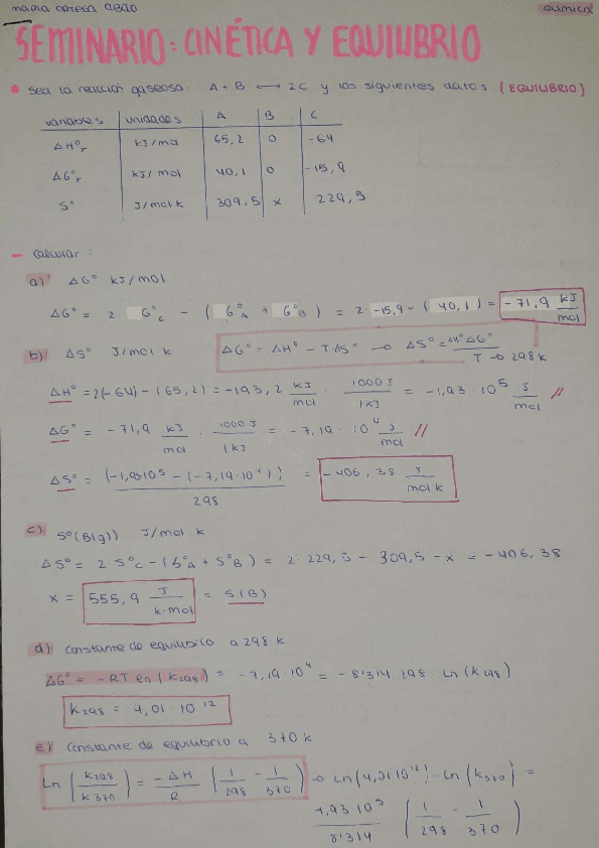 MARIA ORTEGA ABAD
QUIMICA
SEMINARIO: CINÉTICA Y EQUILIBRIO
• sea la reacción gaseosa: A + B ⟷ 2C y los siguientes datos (EQUILIBRIO)
variables | unidades | A | B | C
ΔH°r | KJ/mol | 65,2 | 0 | -64
ΔG°r | KJ/mol | 40,1 | 0 | -15,9
S° | J/mol K | 309,5 | x | 229,5
- calcular:
a) ΔG° KJ/mol
ΔG° = 2 · G°C - (G°A + G°B) = 2 · -15,9 - (40,1) = -71,9 KJ/mol
b) ΔS° J/mol K ΔG° = ΔH° - T·ΔS° → ΔS° = ΔH° ΔG° / T → 298 K
ΔH° = 2(-64) - (65,2) = -193,2 KJ/mol · 1000 J/1 KJ = -1,93 · 10⁵ J/mol //
ΔG° = -71,9 KJ/mol · 1000 J/1 KJ = -7,19 · 10⁴ J/mol //
ΔS° = (-1,93·10⁵ - (-7,19·10⁴)) / 298 = -406,38 J/mol K
c) S°(B(g)). J/mol K
ΔS° = 2 S°C - (S°A + S°B) = 2 · 229,5 - 309,5 - x = -406,38
x = 555,9 J/K·mol = S(B)
d) constante de equilibrio a 298 K
ΔG° = -RT en (K298) = -7,19 · 10⁴ = -8'314 · 298 · Ln (K298)
K298 = 4,01 · 10¹²
e) constante de equilibrio a 370 K
Ln (K298/K370) = -ΔH/R (1/298 - 1/370) → Ln(4,01·10¹²) - Ln(K370) =
1,93·10⁵/8'314 · (1/298 - 1/370)